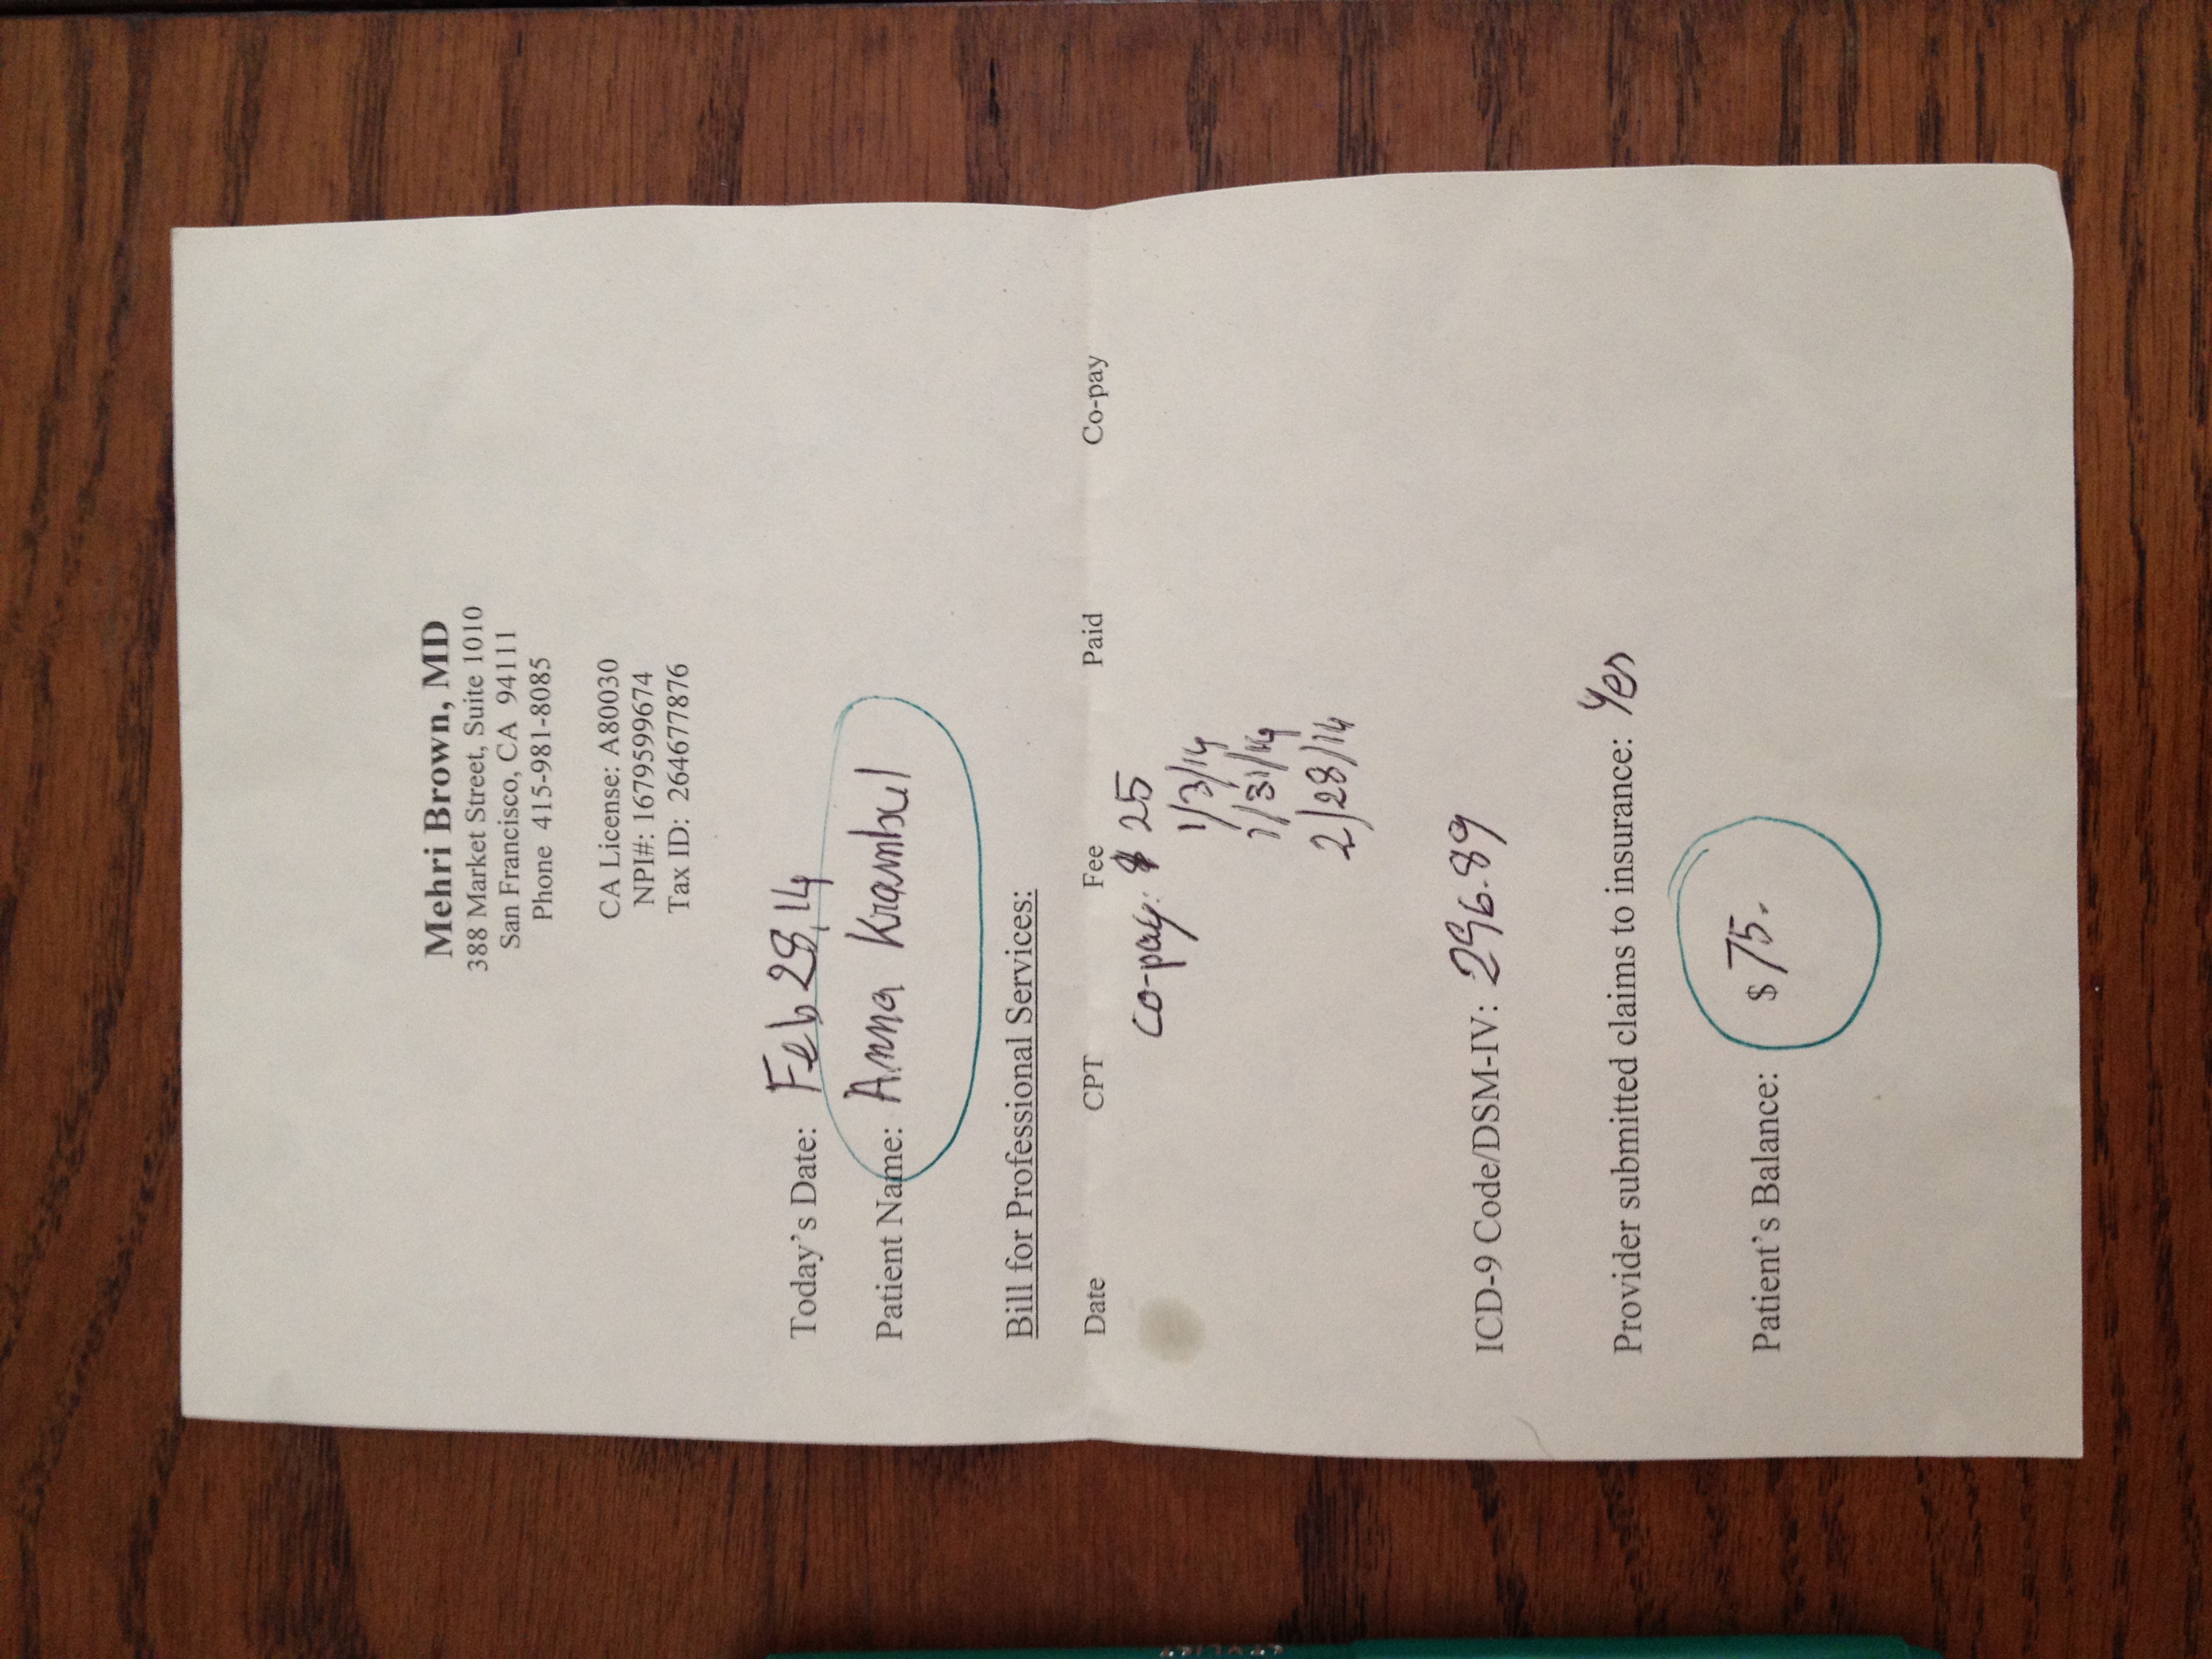 Mehri Brown, MD
388 Market Street, Suite 1010
San Francisco, CA 94111
Phone 415-981-8085
CA License: A80030
NPI#: 1679599674
Tax ID: 264677876
Today's Date: Feb 28, 14
Patient Name: Anna Krambul
Bill for Professional Services:
Date CPT Fee Paid Co-pay
co-pay: $ 25
1/3/14
1/31/14
2/28/14
ICD-9 Code/DSM-IV: 296.89
Provider submitted claims to insurance: Yes
Patient's Balance: $ 75.